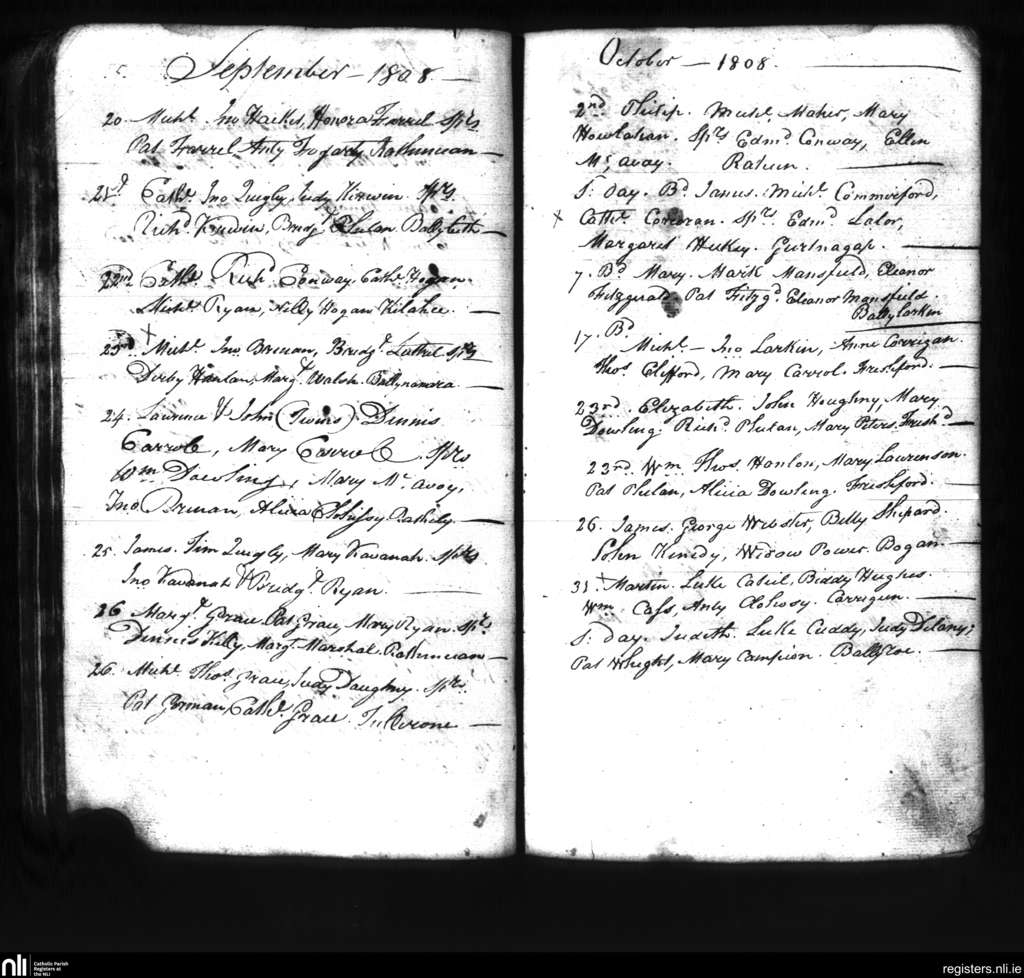 September - 1808
20. Michl. Jno Hacket, Honora Farrel Sprs
Pat Farrel Anty Fogarty Rathmucan
21st Cathe. Jno Quigly, Judy Kirwin Sprs
Richd. Kirwin, Bridgt. Phelan Ballybeth
22nd Cathe. Richd. Conway, Cathe. Hogan.
Michl. Ryan, Nelly Hogan Kilahee.
x
23d. Michl. Jno Brenan, Bridgt. Sprs
Derby Hanlan, Margt. Walsh. Ballynamara
24. Laurence & John (Twins) Dinnis
Carrole, Mary Carrole. Sprs
Wm Dowling, Mary Mc. avoy,
Jno Brenan, Alicia Clohissy
25 James. Tim Quigly, Mary Kavanah. Sprs
Jno Kavanah & Bridgt. Ryan.
26 Margt. Grace. Pat Grace, Mary Ryan Sprs
Dinnis Kelly, Margt. Marshal. Rathmucan
26. Michl. Thos. Grace, Judy Daughny. Sprs.
Pat Gorman, Cathe. Grace.
October - 1808.
2nd Philip. Michl. Maher, Mary
Howlahan. Sprs Edmd. Conway, Ellen
Mc. avoy. Ratuen.
S. Day. Bd James. Michl. Commerford,
x Cathe. Corcoran. Sprs. Edmd. Lalor,
Margaret Hickey. Gurtnagap.
7. Bd. Mary. Mark Mansfield, Eleanor
Fitzgerald Pat Fitzgd. Eleanor Mansfield.
Ballylarkin
17. Bd
Michl. - Jno Larkin, Anne Corrigan.
Thos. Clifford, Mary Carrol. Freshford.
23rd. Elizabeth. John Houghny, Mary
Dowling. Richd. Phelan, Mary Peters. Freshd
23rd. Wm. Thos. Hanlon, Mary Laurenson.
Pat Phelan, Alicia Dowling. Freshford.
26. James. George Webster, Betty Shepard.
John Kenedy, Widow Power. Bogan.
31 x Martin. Luke Cahil, Biddy Hughes.
Wm Cass, Anty Clohosy. Carrigeen.
S. Day. Judith. Luke Cuddy, Judy Delany,
Pat Whight, Mary Campion. Ballyroe.
nli
Catholic Parish
Registers at
the NLI
registers.nli.ie